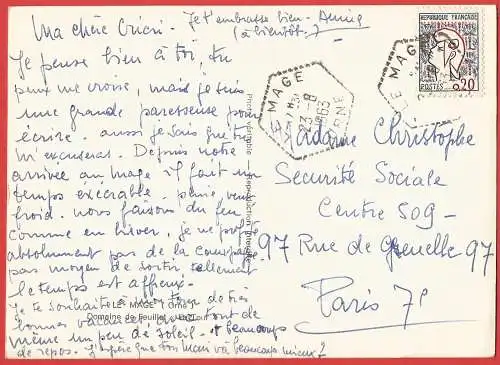 Ma chère Cricri. Je t'embrasse bien. Annie
(à bientôt.?)
Je pense bien à toi, tu
peux me croire, mais je suis
une grande paresseuse pour
écrire. aussi je sais que tu
m'excuseras. Depuis notre
arrivée au Mage il fait un
temps exécrable. pluie, vent
froid. nous faisons du feu
comme en hiver, je ne profite
absolument pas de la campagne
pas moyen de sortir tellement
le temps est affreux.
je te souhaite de très
bonnes vacances, avec tout de
même un peu de soleil. et beaucoup
de repos. J'espère que ton mari va beaucoup mieux?
LE MAGE (Orne)
Domaine de Feuillet
LE MAGE
23 -8
1963
ORNE
LE MAGE
REPUBLIQUE FRANÇAISE
POSTES 0,20
Madame Christophe
Sécurité Sociale
Centre 509-
97 Rue de Grenelle 97
Paris 7e